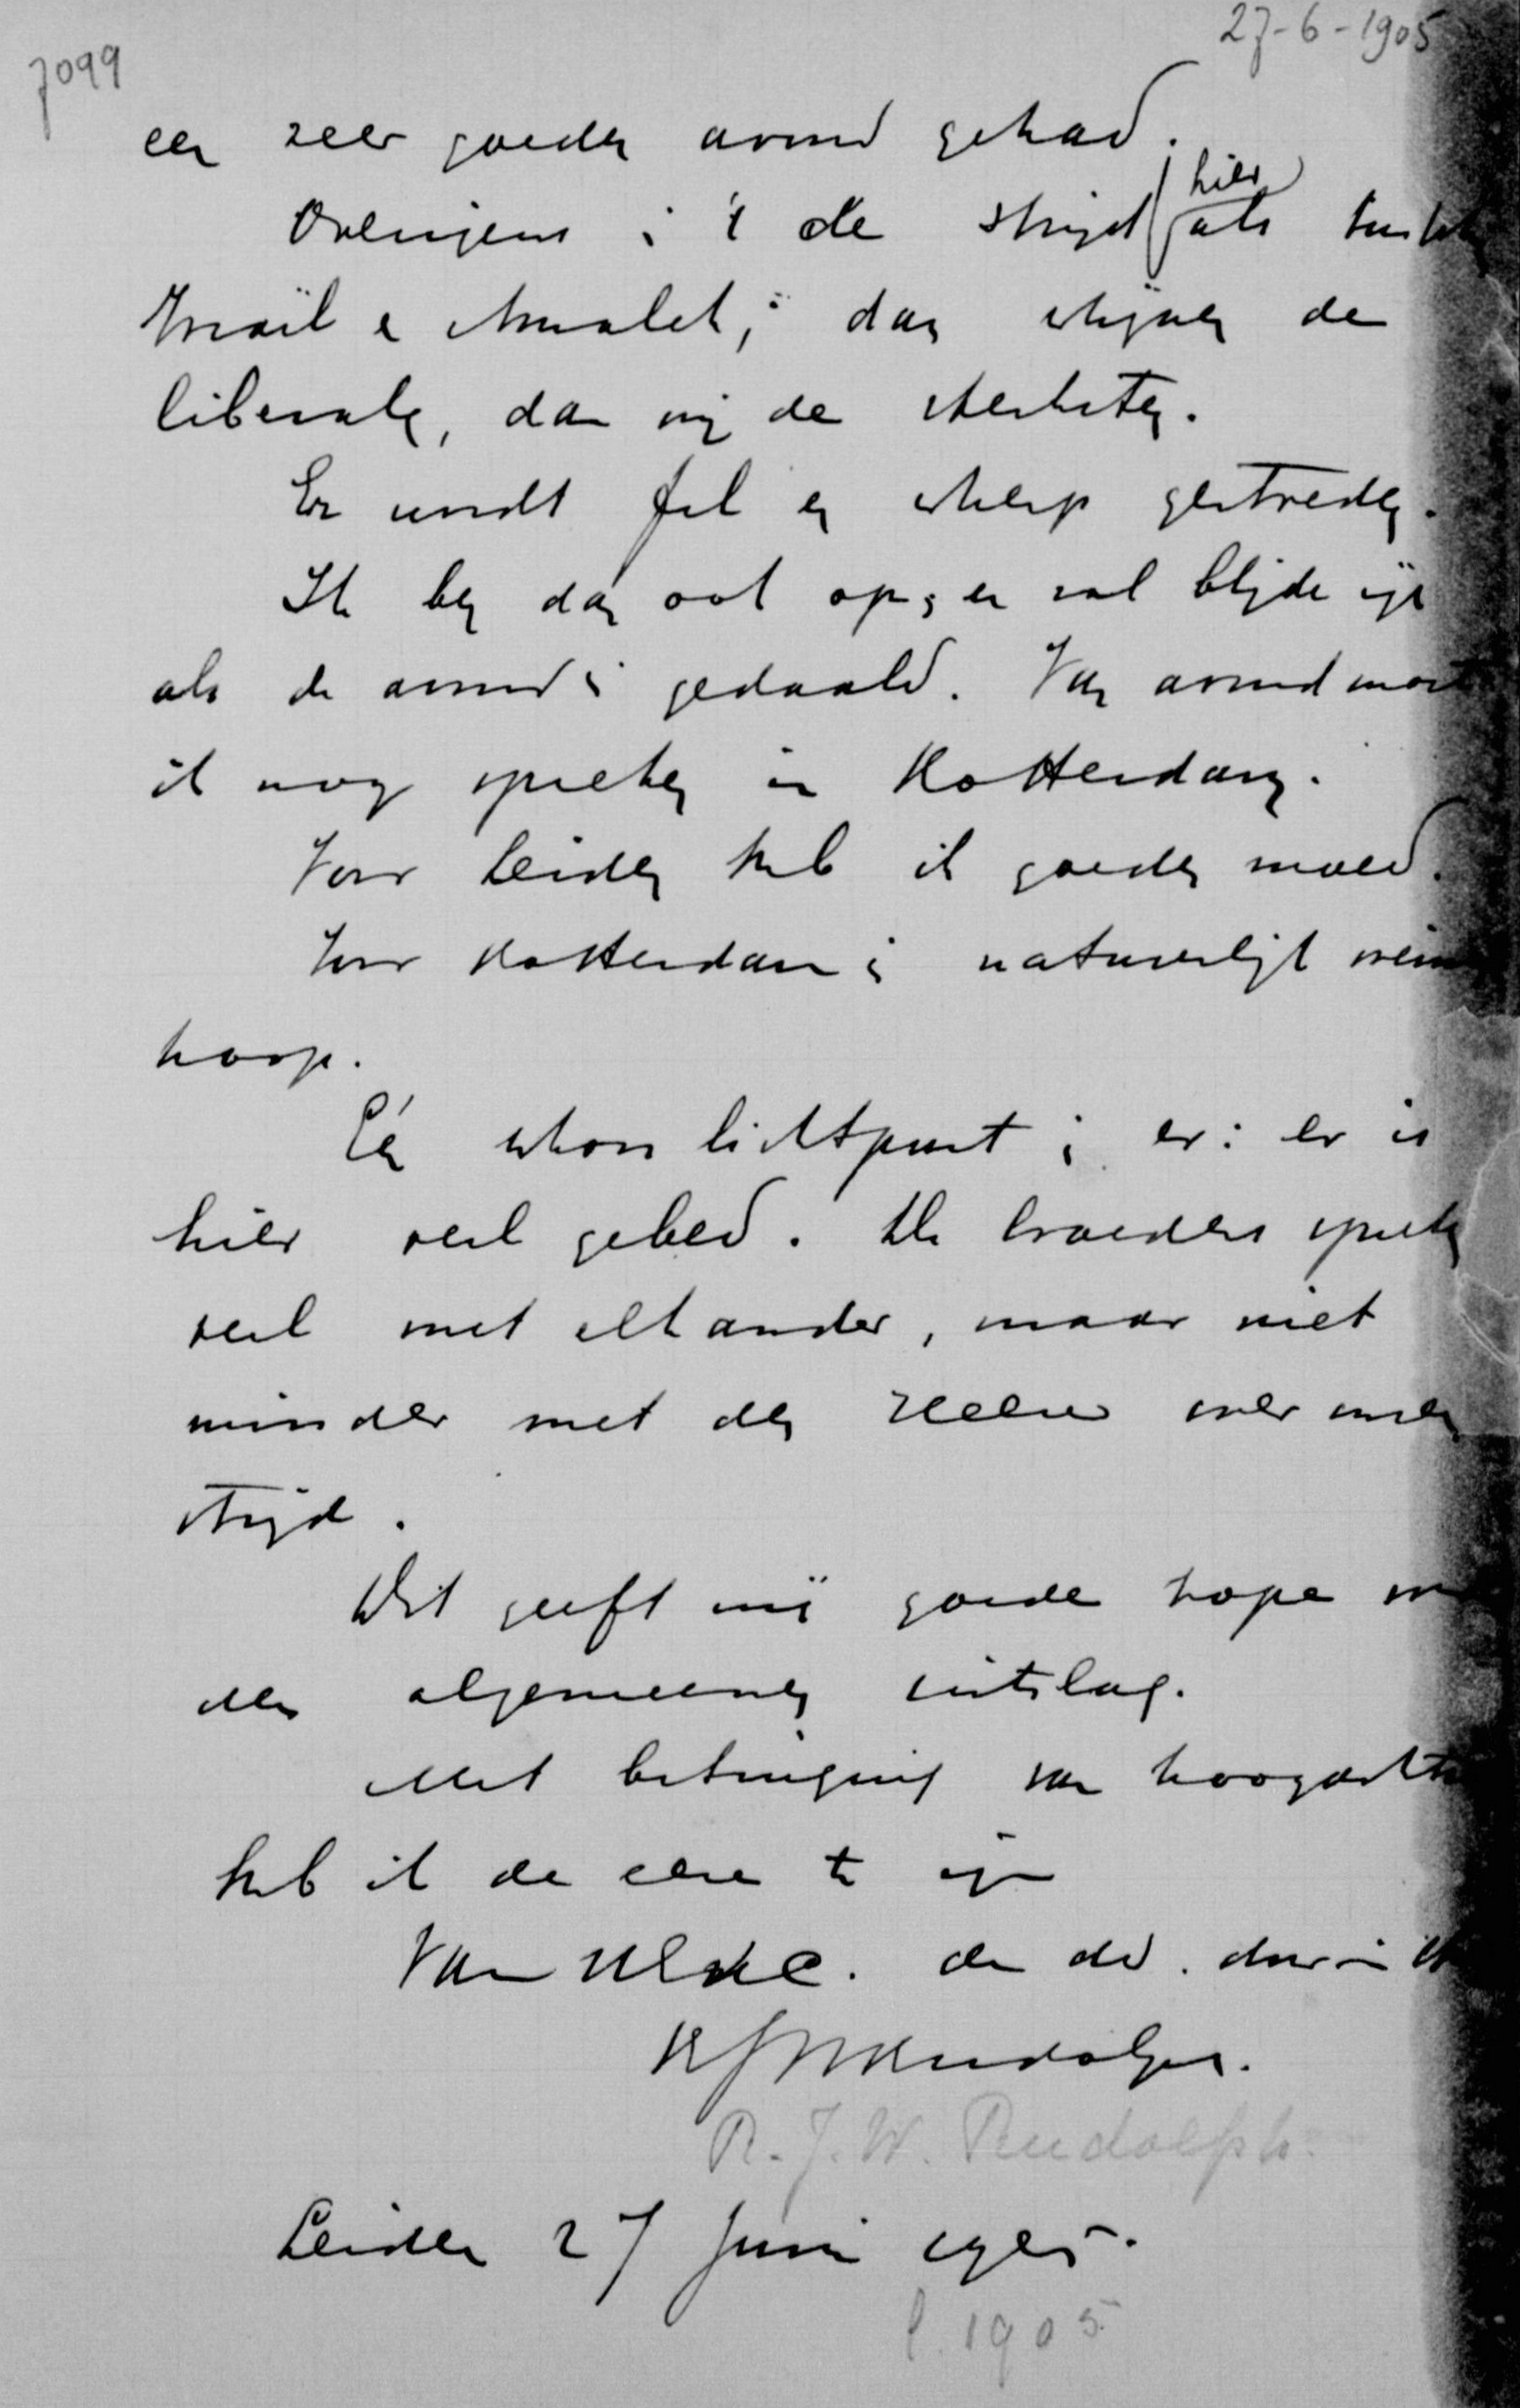 7099
27-6-1905
een zeer goeden avond gehad.
Overigens is 't de strijd hier als tusschen
Israël en Amalek; dan schijnen de
liberalen, dan wij de sterksten.
Er wordt fel en scherp gestreden.
Ik ben dan ook op, en zal blijde zijn
als de avond is gedaald. Van avond moet
ik nog spreken in Rotterdam.
Voor Leiden heb ik goeden moed.
Voor Rotterdam is natuurlijk weinig
hoop.
Eén schoon lichtpunt is er: er is
hier veel gebed. De broeders spreken
veel met elkander, maar niet
minder met den Heere over onzen
strijd.
Dit geeft mij goede hope voor
den algemeenen uitslag.
Met betuiging van hoogachting
heb ik de eere te zijn
Van UExc. de dw.
RJWRudolph.
R. J. W. Rudolph.
Leiden 27 Juni 1905.
l. 1905